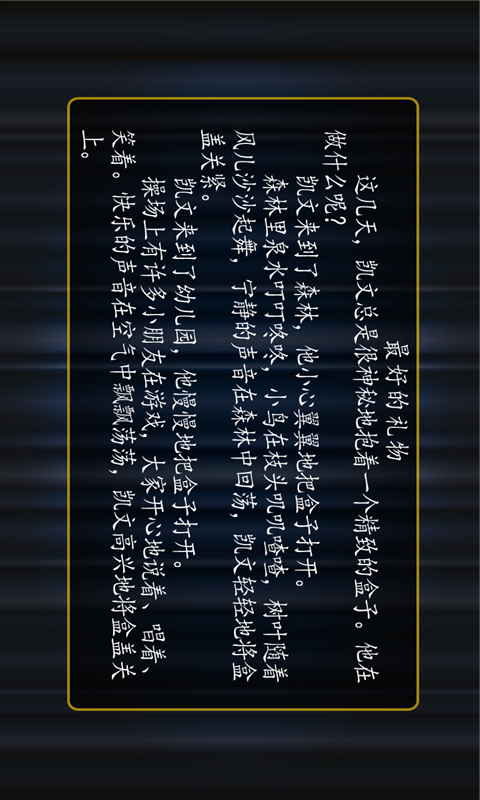 最好的礼物
这几天，凯文总是很神秘地抱着一个精致的盒子。他在
做什么呢？
凯文来到了森林，他小心翼翼地把盒子打开。
森林里泉水叮叮咚咚，小鸟在枝头叽叽喳喳，树叶随着
风儿沙沙起舞，宁静的声音在森林中回荡，凯文轻轻地将盒
盖关紧。
凯文来到了幼儿园，他慢慢地把盒子打开。
操场上有许多小朋友在游戏，大家开心地说着、唱着、
笑着。快乐的声音在空气中飘飘荡荡，凯文高兴地将盒盖关
上。